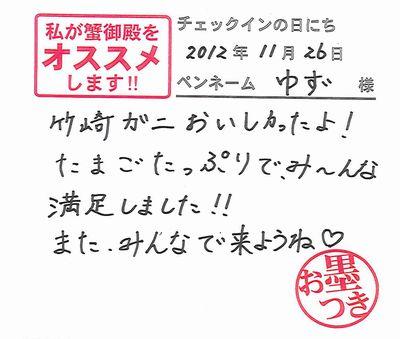 私が蟹御殿を
オススメ
します!!
チェックインの日にち
2012年11月26日
ペンネーム ゆず 様
竹崎がニおいしかったよ!
たまごたっぷりで、み〜んな
満足しました!!
また、みんなで来ようね♡
お墨つき